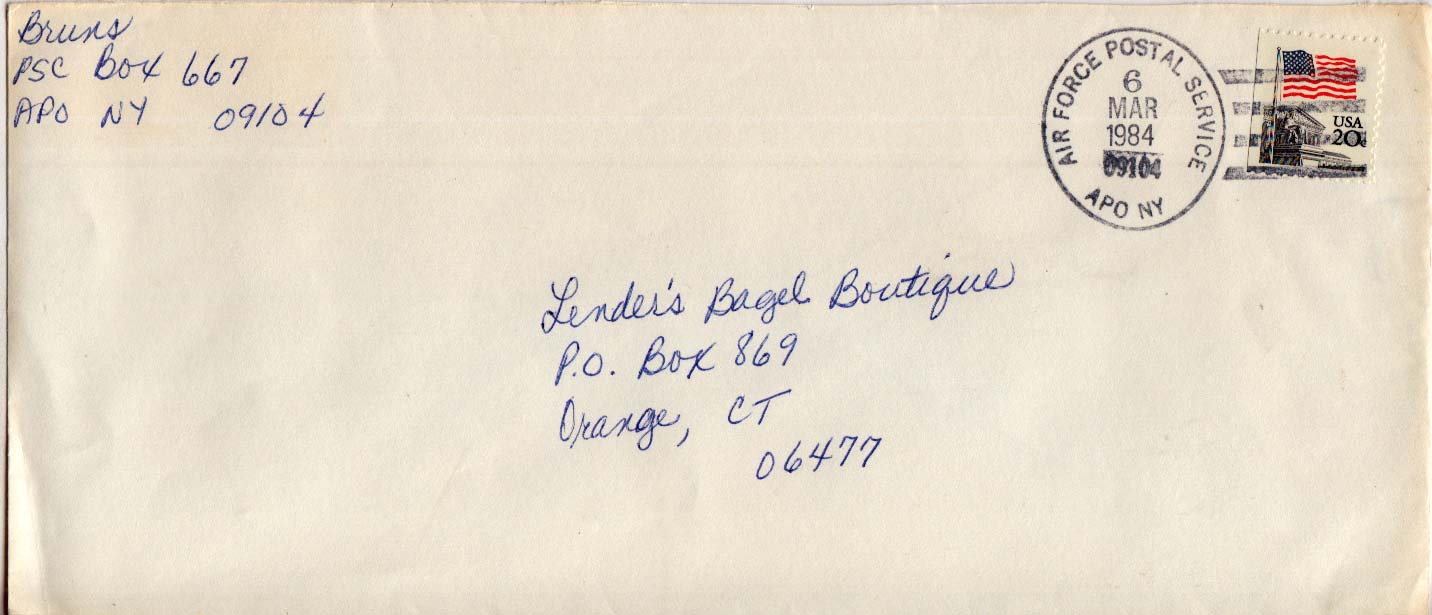 Bruns
PSC Box 667
APO NY 09104
AIR FORCE POSTAL SERVICE
6
MAR
1984
09104
APO NY
USA
20c
Lender's Bagel Boutique
P.O. Box 869
Orange, CT
06477